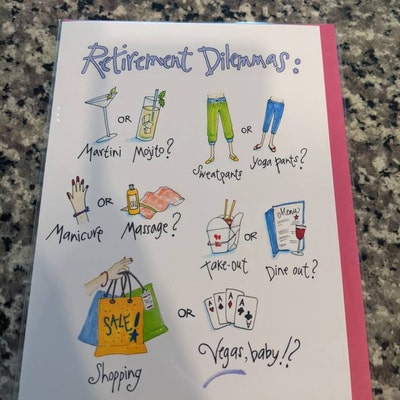 Retirement Dilemmas:
OR OR
Martini Mojito? Sweatpants Yoga pants?
OR
Manicure Massage?
OR
Take-out Dine out?
Menu
SALE!
OR
A A A A
Shopping Vegas, baby!?